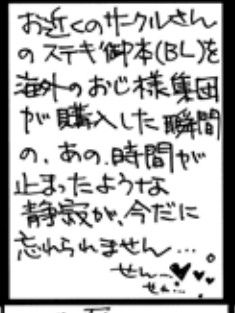 お近くのサークルさん
のステキ御本(BL)を
海外のおじ様集団
が購入した瞬間
の、あの、時間が
止まったような
静寂が、今だに
忘れられません…。
せん…♥♥♥
せん…